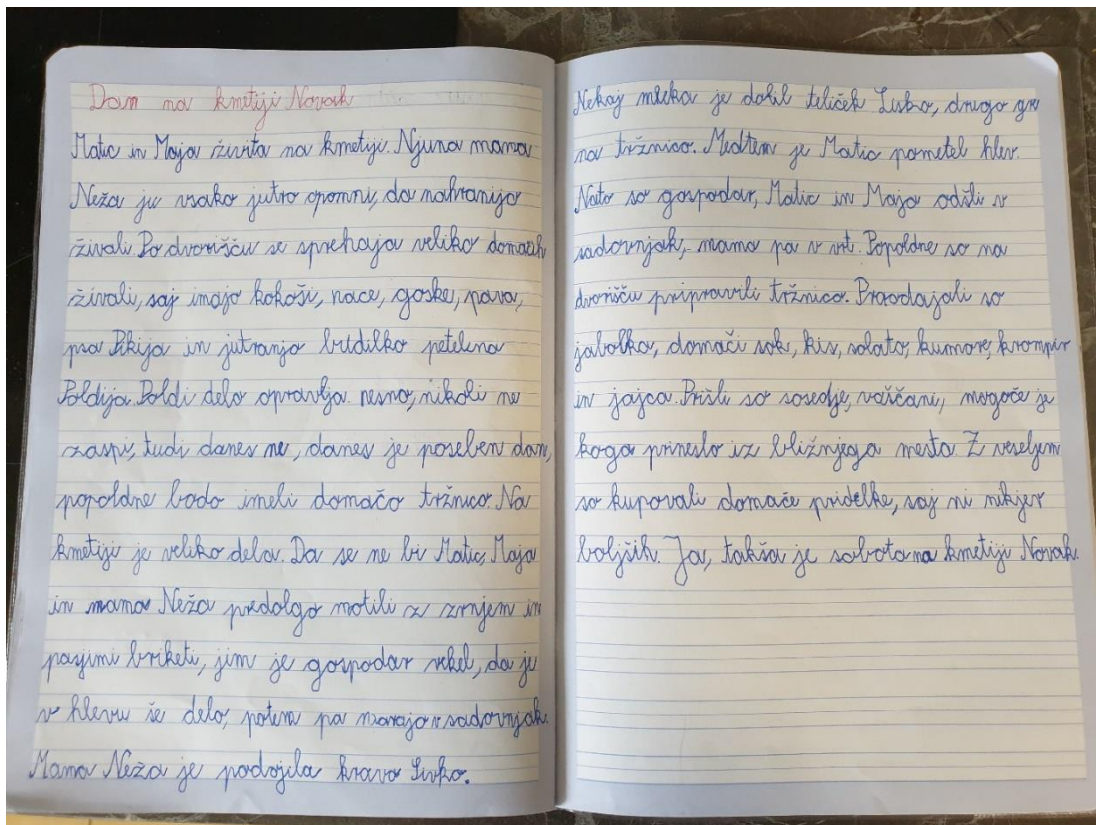 Dan na kmetiji Novak
Matic in Maja živita na kmetiji. Njuna mama
Neža ju vsako jutro opomni, da nahranijo
živali. Po dvorišču se sprehaja veliko domačih
živali, saj imajo kokoši, race, goske, pava,
psa Pikija in jutranjo budilko petelina
Poldija. Poldi delo opravlja resno, nikoli ne
zaspi, tudi danes ne, danes je poseben dan,
popoldne bodo imeli domačo tržnico. Na
kmetiji je veliko dela. Da se ne bi Matic, Maja
in mama Neža predolgo motili z zrnjem in
pasjimi briketi, jim je gospodar rekel, da je
v hlevu še delo, potem pa morajo v sadovnjak.
Mama Neža je podojila kravo Sivko.
Nekaj mleka je dobil teliček Lisko, drugo gre
na tržnico. Medtem je Matic pometel hlev.
Nato so gospodar, Matic in Maja odšli v
sadovnjak, mama pa v vrt. Popoldne so na
dvorišču pripravili tržnico. Prodajali so
jabolka, domači sok, kis, solato, kumare, krompir
in jajca. Prišli so sosedje, vaščani, mogoče je
koga prineslo iz bližnjega mesta. Z veseljem
so kupovali domače pridelke, saj ni nikjer
boljših. Ja, takšna je sobota na kmetiji Novak.